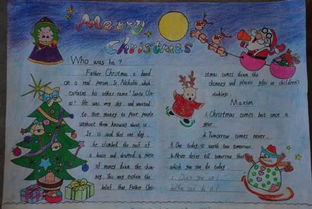 Merry
Christmas
Who was he?
Father Christmas is based
on a real person, St. Nicholas, which
explains his other name "Santa Cla-
us". He was very shy and wanted
to give money to poor people
without them knowing about it.
It is said that one day,
he climbed the roof of
a house and dropped a purse
of money down the chim-
ney. This may explain the
belief that Father Chri-
stmas comes down the
chimney and places gifts in children's
stockings.
Maxim
1. Christmas comes but once a
year.
2. Tomorrow comes never.
3. One today is worth two tomorrow.
4. Never defer till tomorrow what
which you can do today.